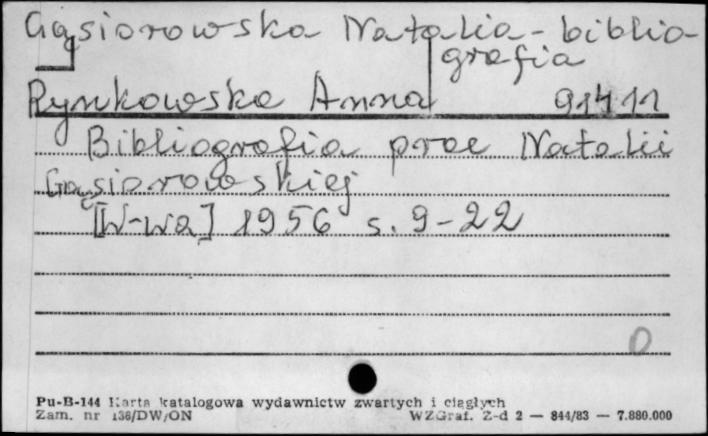 Gąsiorowska Natalia - biblio-
grafia
Rynkowska Anna 91411
Bibliografia prac Natalii
Gąsiorowskiej
[W-wa] 1956 s. 9-22
0
Pu-B-144 Karta katalogowa wydawnictw zwartych i ciągłych
Zam. nr 136/DW/ON WZGraf. Z-d 2 — 844/83 — 7.880.000